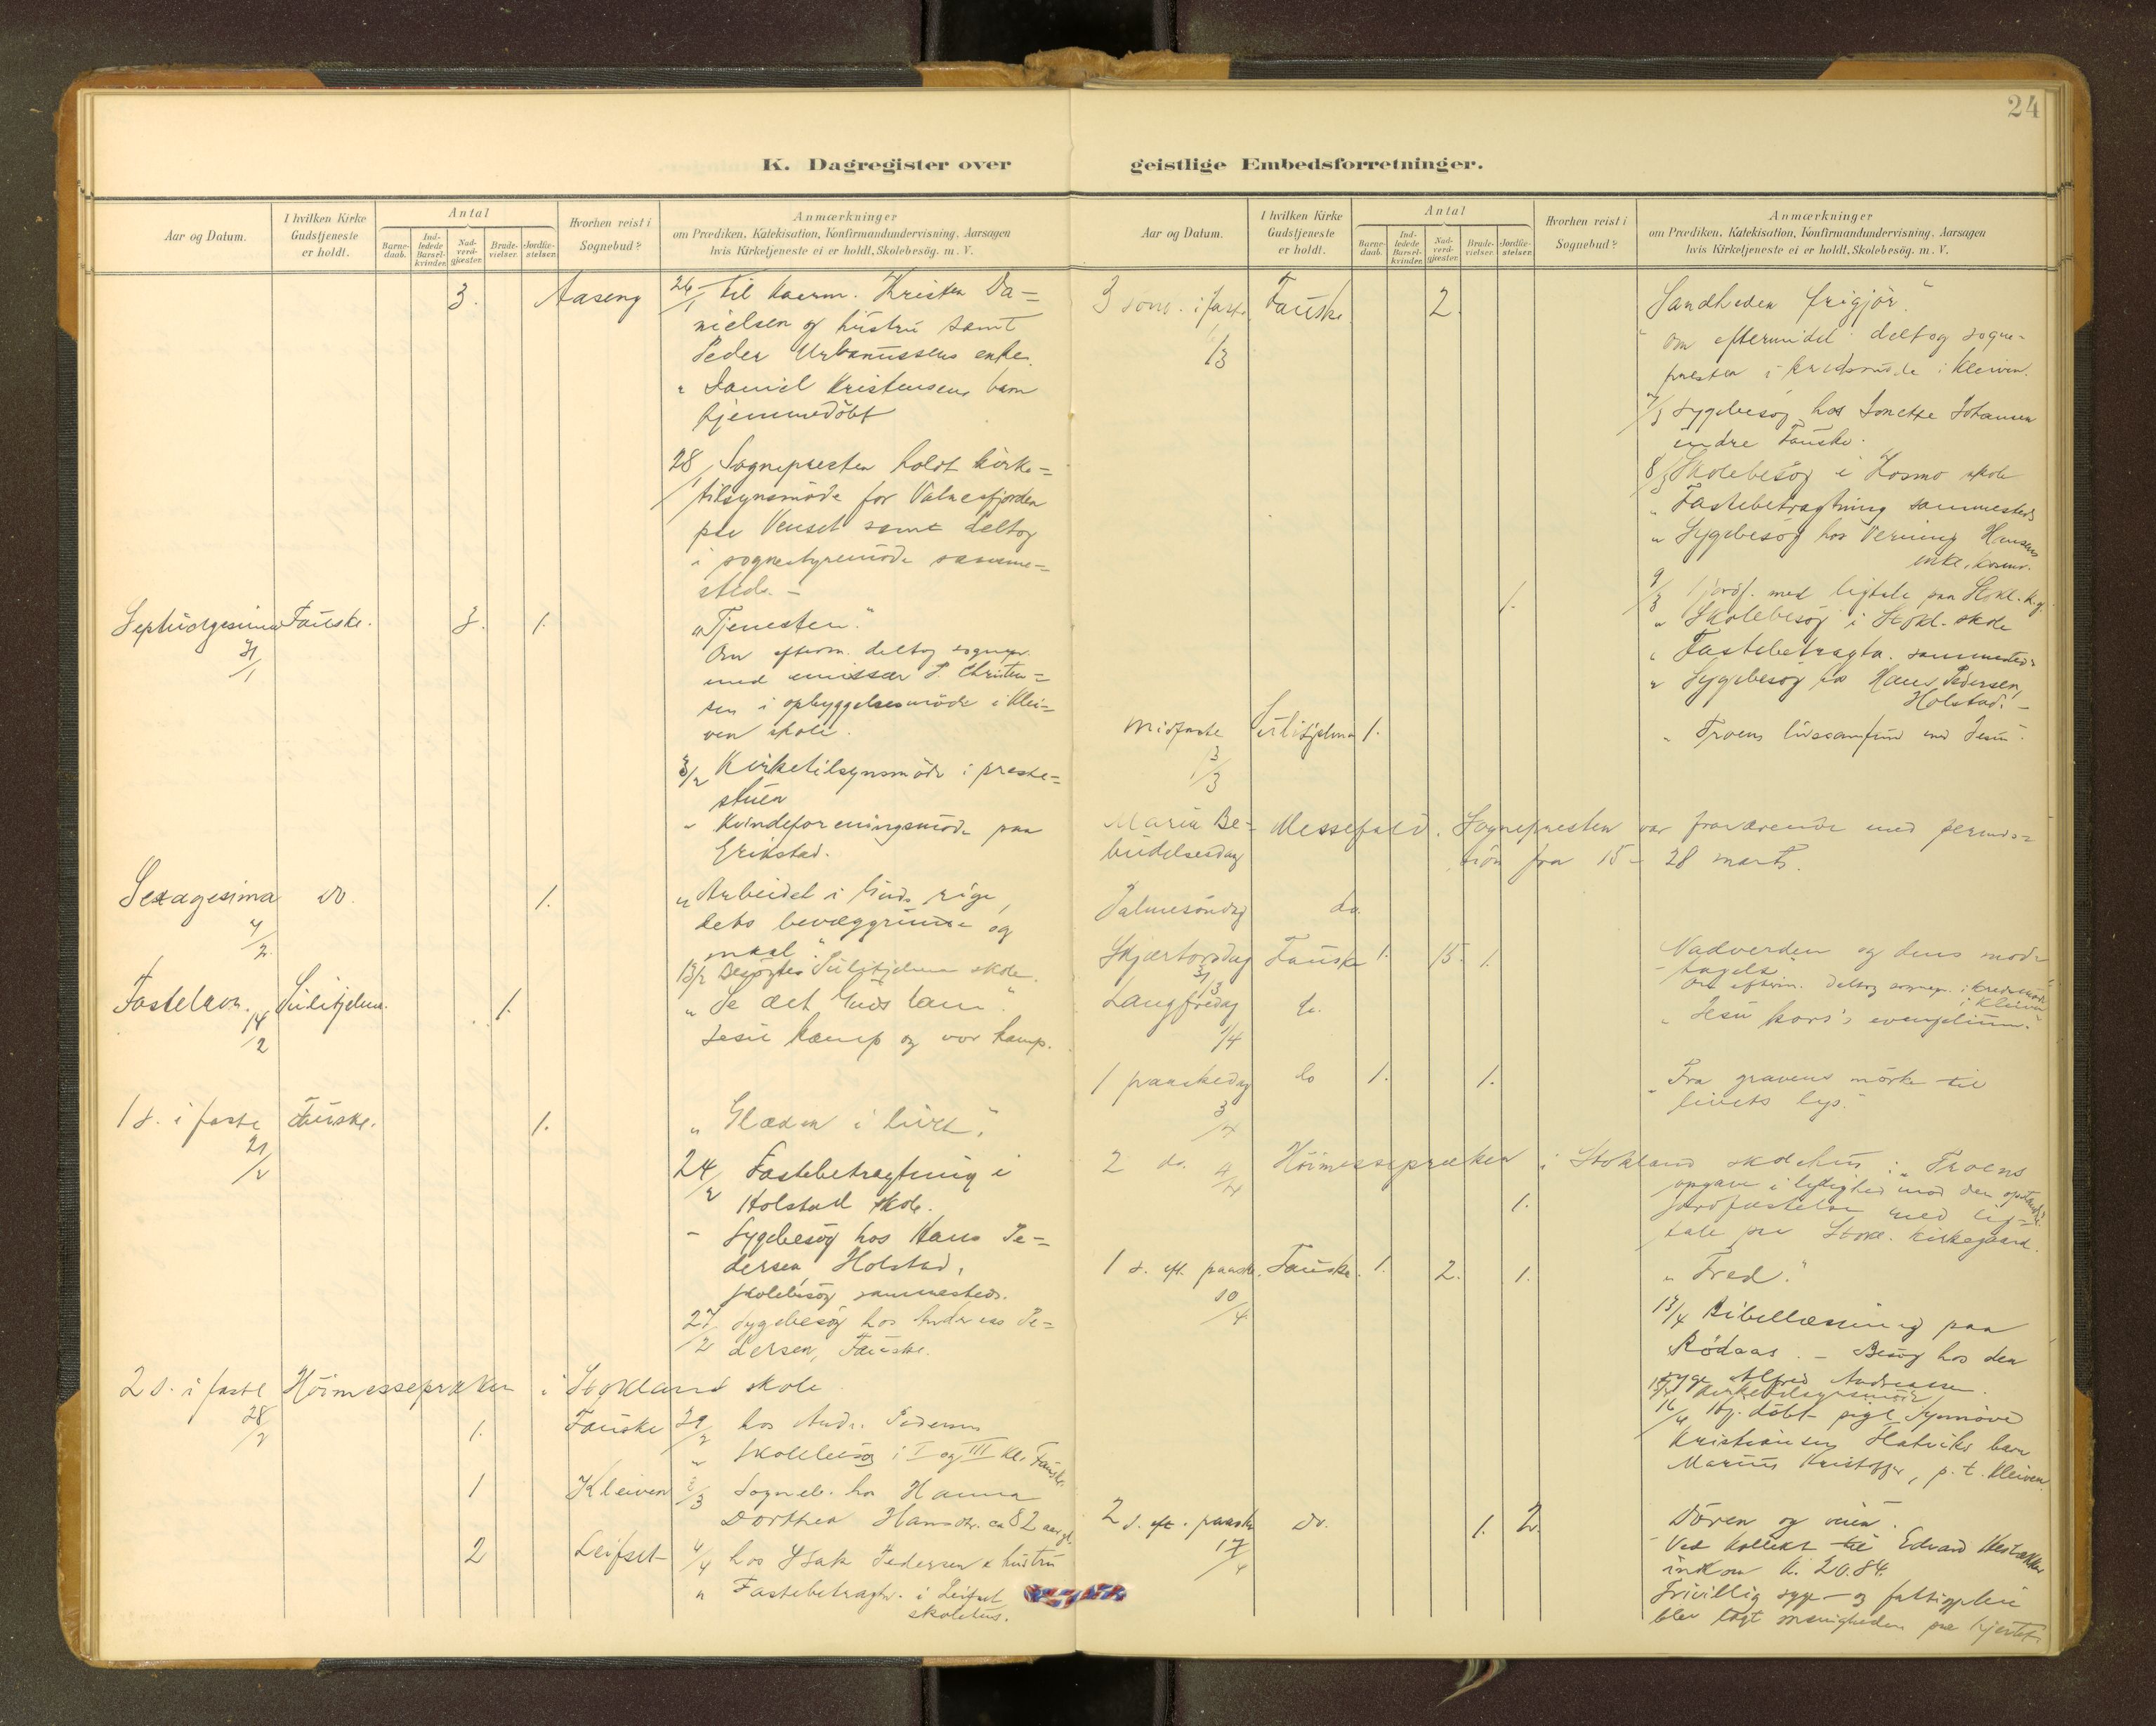 24
K. Dagregister over
Aar og Datum.
I hvilken Kirke Gudstjeneste er holdt.
Antal
Barnedaab.
Indledede Barselkvinder.
Nadverdgjæster.
Brudevielser.
Jordfæstelser.
Hvorhen reist i Sognebud?
Anmærkninger
om Prædiken, Katekisation, Konfirmandundervisning, Aarsagen
hvis Kirketjeneste ei er holdt, Skolebesög. m. V.
3. Aaseng 26/1 til Kristen Da=
nielsen og hustru samt
Peder Urbanussens enke.
" Daniel Kristensens barn
hjemmedöbt
28/1 Sognepresten holdt kirke=
tilsynsmöde for Valnesfjorden
paa Venset samt deltog
i sognestyremöde samme=
steds. -
Septuagesima Fauske. 3. 1. "Tjenesten".
31/1
Om efterm. deltog sognepr.
med emissær P. Christen=
sen i opbyggelsesmöde i Klei=
ven skole.
3/2 Kirketilsynsmöde i preste=
stuen
" Kvindeforeningsmöde paa
Erikstad.
Sexagesima do. 1. "Arbeidet i Guds rige,
7/2 dets bevæggrunde og
maal".
13/2 Besögtes Sulitjelma skole.
Fastelavn. Sulitjelma. 1. "Se det Guds lam".
14/2 Jesu kamp og vor kamp.
1 s. i faste Fauske. 1. "Glæden i livet".
21/2
24/2 Fastebetragtning i
Holstad skole.
- Sygebesög hos Hans Pe=
dersen, Holstad,
skolebesög sammesteds.
27/2 Sygebesög hos Andreas Pe=
dersen, Fauske.
2 s. i faste Höimessepræken i Stokland skole
28/2
1. Fauske 29/2 hos Andr. Pedersen
" Skolebesög i I og III kl. Fauske.
1 Kleiven 2/3 Sogneb. hos Hanna
Dorthea Hansdtr. ca 82 aar gl.
2 Leifset 4/4 hos Isak Pedersen & hustru
" Fastebetragtn. i Leifset
skolehus.
geistlige Embedsforretninger.
Aar og Datum.
I hvilken Kirke Gudstjeneste er holdt.
Antal
Barnedaab.
Indledede Barselkvinder.
Nadverdgjæster.
Brudevielser.
Jordfæstelser.
Hvorhen reist i Sognebud?
Anmærkninger
om Prædiken, Katekisation, Konfirmandundervisning, Aarsagen
hvis Kirketjeneste ei er holdt, Skolebesög. m. V.
3 sönd. i faste Fauske 2. Sandheden frigjör".
" Om eftermidd. deltog sogne-
presten i kredsmöde i Kleiven.
7/3 Sygebesög hos Jonette Johansen
indre Fauske.
8/3 Skolebesög i Kosmo skole
" Fastebetragtning sammesteds
" Sygebesög hos Hansens
enke, Kosmo.
1. 9/3 1 jordf. med ligtale paa Stokl. k.g.
" Skolebesög i Stokl. skole
" Fastebetragtn. sammesteds
" Sygebesög hos Hans Pedersen,
Holstad. -
Midfaste Sulitjelma 1. " Troens livssamfund med Jesu".
13/3
Maria Be= Messefald. Sognepresten var fraværende med permis=
budelsesdag sion fra 15 - 28 marts.
Palmesöndag do.
Skjærtorsdag Fauske 1. 15. 1. Nadverden og dens mod-
31/3 tagelse
Om efterm. deltog sognepr. i kredsmöde
i Kleiven
Langfredag do. " Jesu kors's evangelium."
1/4
1 paaskedag do 1. 1. " Fra gravens mörke til
3/4 livets lys."
2 do. 4/4 Höimessepræken i Stokland skolehus: "Troens
opgave i lydighed mod den opstandne."
1. Jordfæstelse med lig=
tale paa Stokl. kirkegaard.
1 s. eft. paaske. Fauske. 1. 2. 1. " Fred."
10/4
13/4 Bibellæsning paa
Rödaas. - Besög hos den
syge Alfred Andreassen.
Kirketilsynsmöde
16/4 Hj. döbt pige Synnöve
Kristiansens Hatviks barn
Marius Kristoffer, p. t. Kleiven.
2 s. eft. paaske do. 1. 2. Dören og veien.
17/4 Ved kollekt til Edvard
indkom K. 20.84.
Frivillig syge- og fattigpleie
blev lagt menigheden paa hjertet.